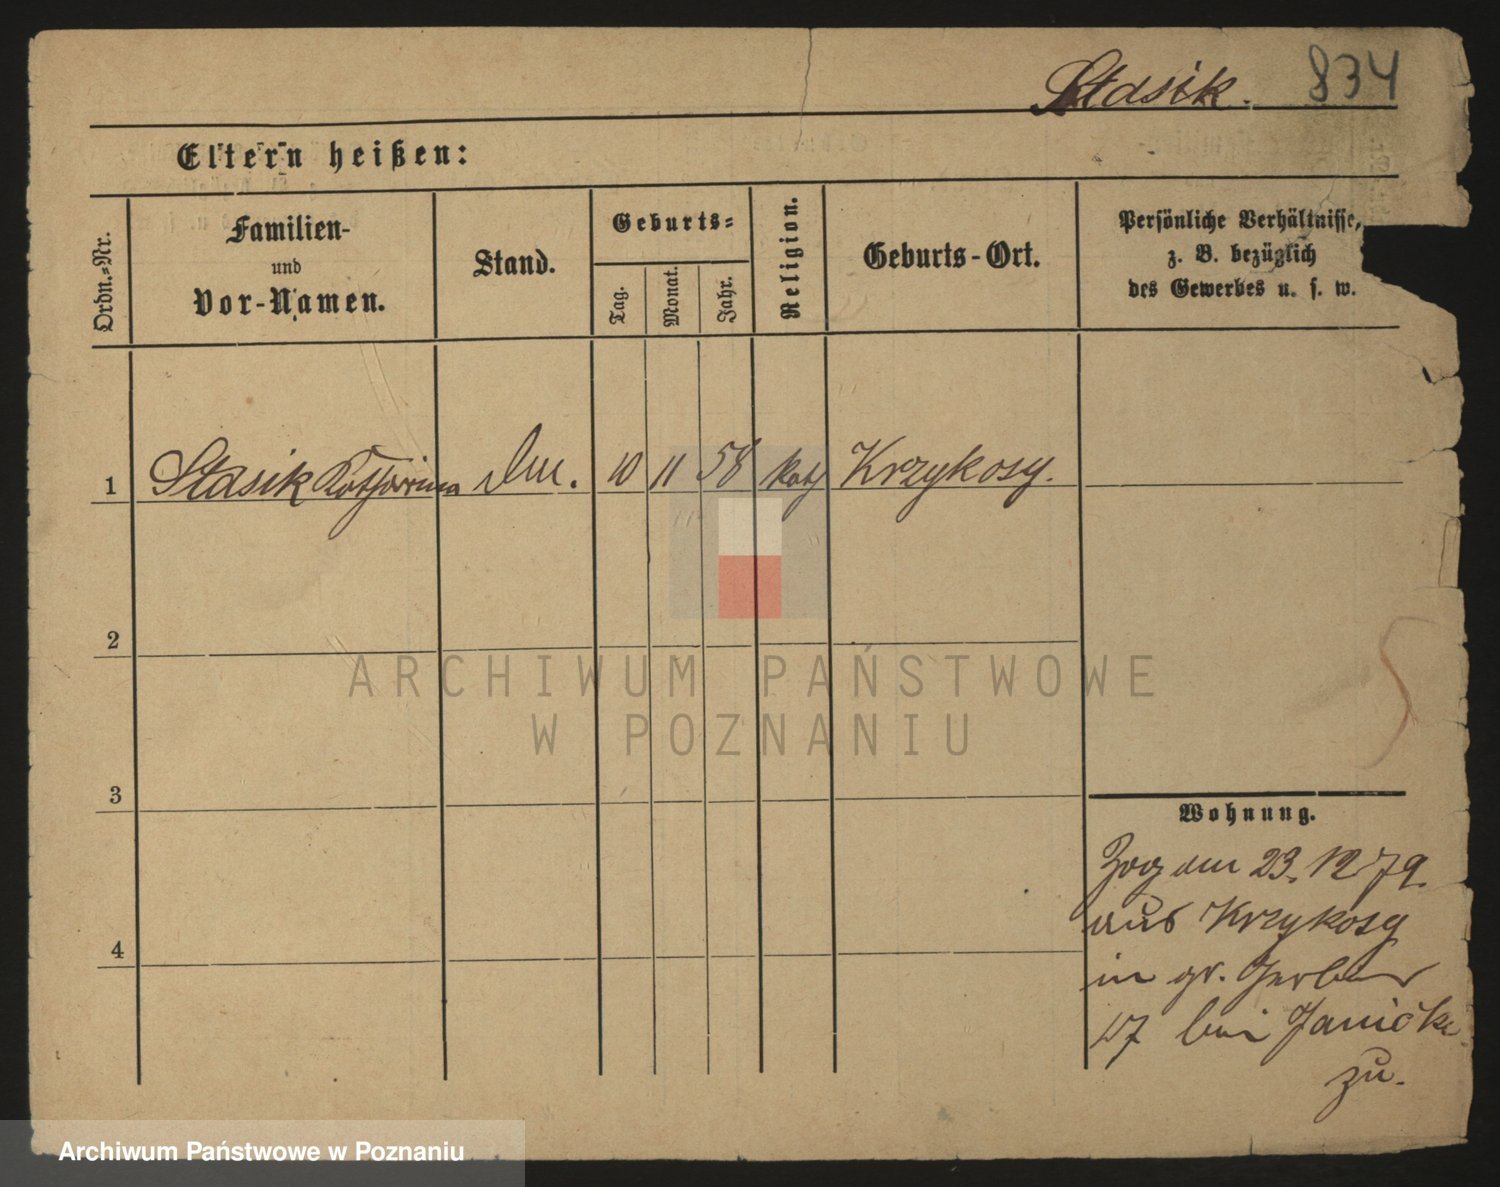 Stasik. 834
Eltern heißen:
Ordn.=Nr.
Familien-
und
Vor-Namen.
Stand.
Geburts=
Tag.
Monat.
Jahr.
Religion.
Geburts-Ort.
Persönliche Verhältnisse,
z. B. bezüglich
des Gewerbes u. s. w.
1 Stasik Katharina 10 11 58 kath Krzykosy.
2
3
4
Wohnung.
Zog am 23. 12 79.
aus Krzykosy
in gr. Gerber
47 bei Janicke
zu.
ARCHIWUM PAŃSTWOWE
W POZNANIU
Archiwum Państwowe w Poznaniu